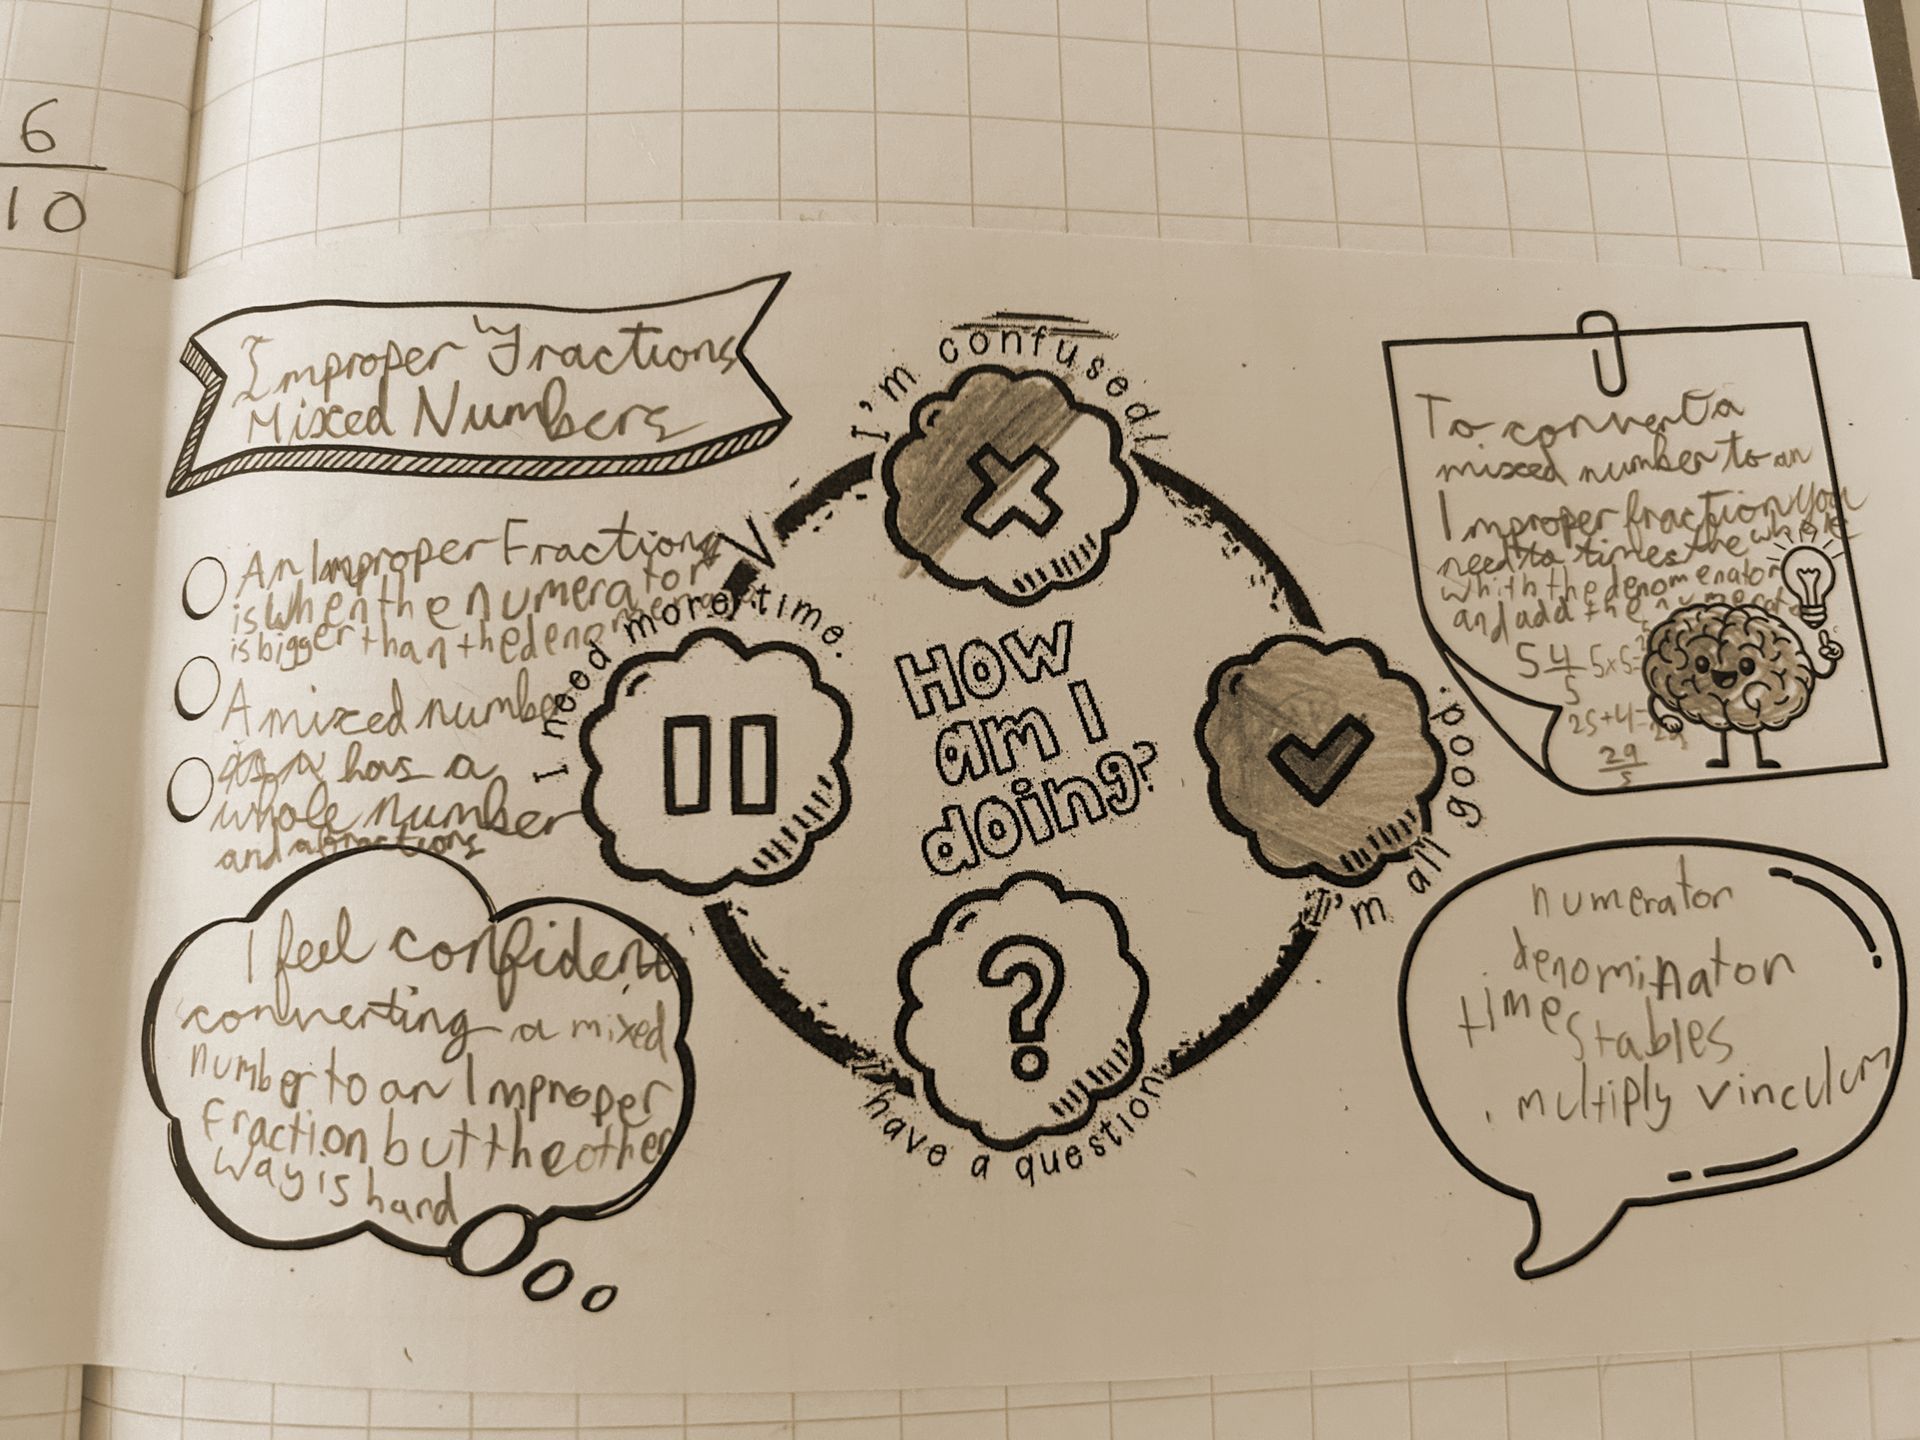 6
10
Improper Fractions
Mixed Numbers
An Improper Fraction
is when the numerator
is bigger than the
A mixed number
has a
whole number
and a fractions
I feel confident
converting a mixed
number to an Improper
fraction but the other
way is hard
I'm confused!
I need more time.
How
am I
doing?
I'm all good.
I have a question.
To convert a
mixed number to an
Improper fraction you
need to times the whole
whith the denomenator
and add the numerator
5 4/5 5x5=
25+4=29
29
5
numerator
denominator
times tables
. multiply vinculum